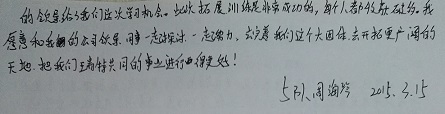 的领导给了我们这次学习机会。此次拓展训练是非常成功的，每个人都收获颇多。我
愿意和我的公司领导、同事一起 一起努力， 着我们这个大团体去开拓更广阔的
天地。把我们 共同的事业进行的 更好！
5队 周海 2015.3.15